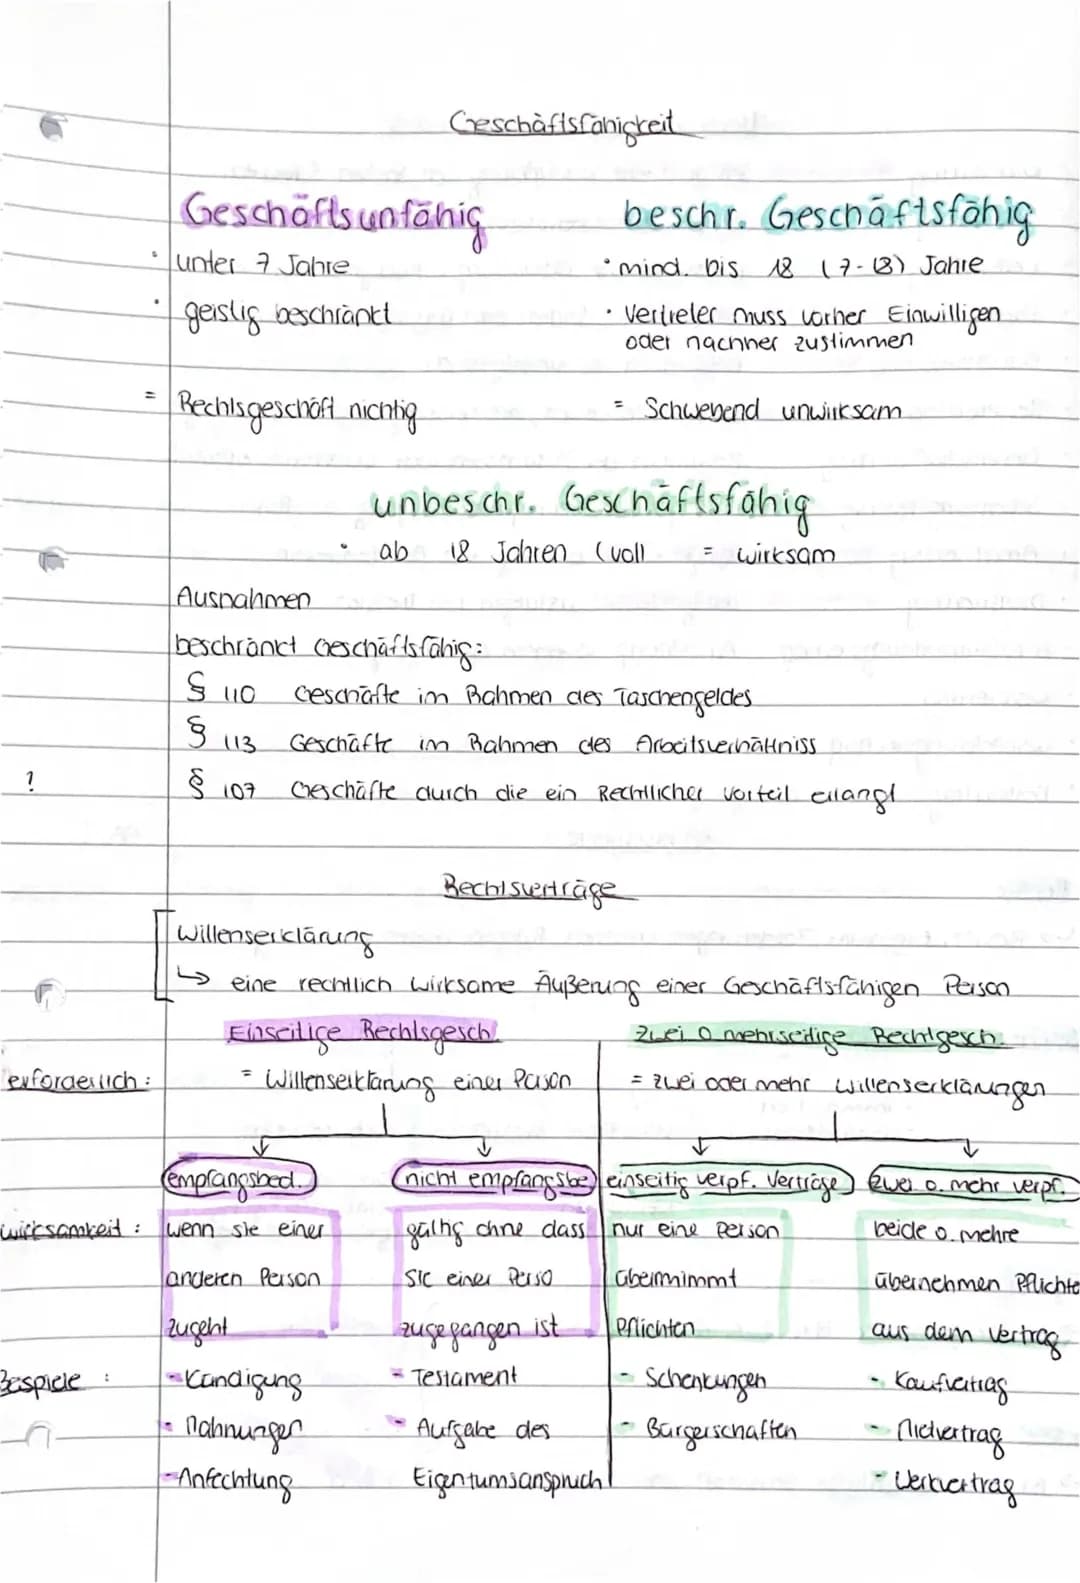 Geschäftsfähigkeit
Geschäftsunfähig
beschr. Geschäftsfähig
· unter 7 Jahre
· mind. bis 18 (7-18) Jahre
· geistig beschränkt
· Vertreter muss vorher Einwilligen
oder nachher zustimmen
= Rechtsgeschäft nichtig
= Schwebend unwirksam
unbeschr. Geschäftsfähig
· ab 18 Jahren (voll = wirksam
Ausnahmen
beschränkt Geschäftsfähig:
§ 110 Geschäfte im Rahmen des Taschengeldes
§ 113 Geschäfte im Rahmen des Arbeitsverhältniss
? § 107 Geschäfte durch die ein Rechtlicher Vorteil erlangt
Rechtsverträge
Willenserklärung
↳ eine rechtlich wirksame Äußerung einer Geschäftsfähigen Person
Einseitige Rechtsgesch.
zwei o mehrseitige Rechtgesch.
erforderlich: = Willenserklärung einer Person
= zwei oder mehr Willenserklärungen
empfangsbed.
nicht empfangsbe
einseitig verpf. Verträge
zwei o. mehr verpf.
wirksamkeit: wenn sie einer
anderen Person
zugeht
gültig ohne dass
sie einer Perso
zugegangen ist
nur eine Person
übernimmt
Pflichten
beide o. mehre
übernehmen Pflichte
aus dem Vertrag
Bespiele:
- Kündigung
- Mahnungen
- Anfechtung
- Testament
- Aufgabe des
Eigentumsanspruch
- Schenkungen
- Bürgerschaften
- Kaufvertrag
- Mietvertrag
- Werkvertrag